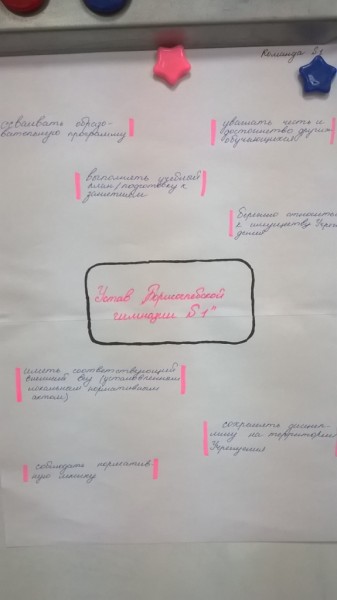 Команда 51
осваивать образо-
вательную программу
уважать честь и
достоинство других
обучающихся
выполнять учебный
план/подготовку к
занятиям
бережно относиться
к имуществу Учреж
дения
"Устав Борисоглебской
гимназии №1"
иметь соответствующий
внешний вид (установленным
локальным нормативным
актом)
сохранять дисцип-
лину на территории
Учреждения
соблюдать норматив-
ную лексику